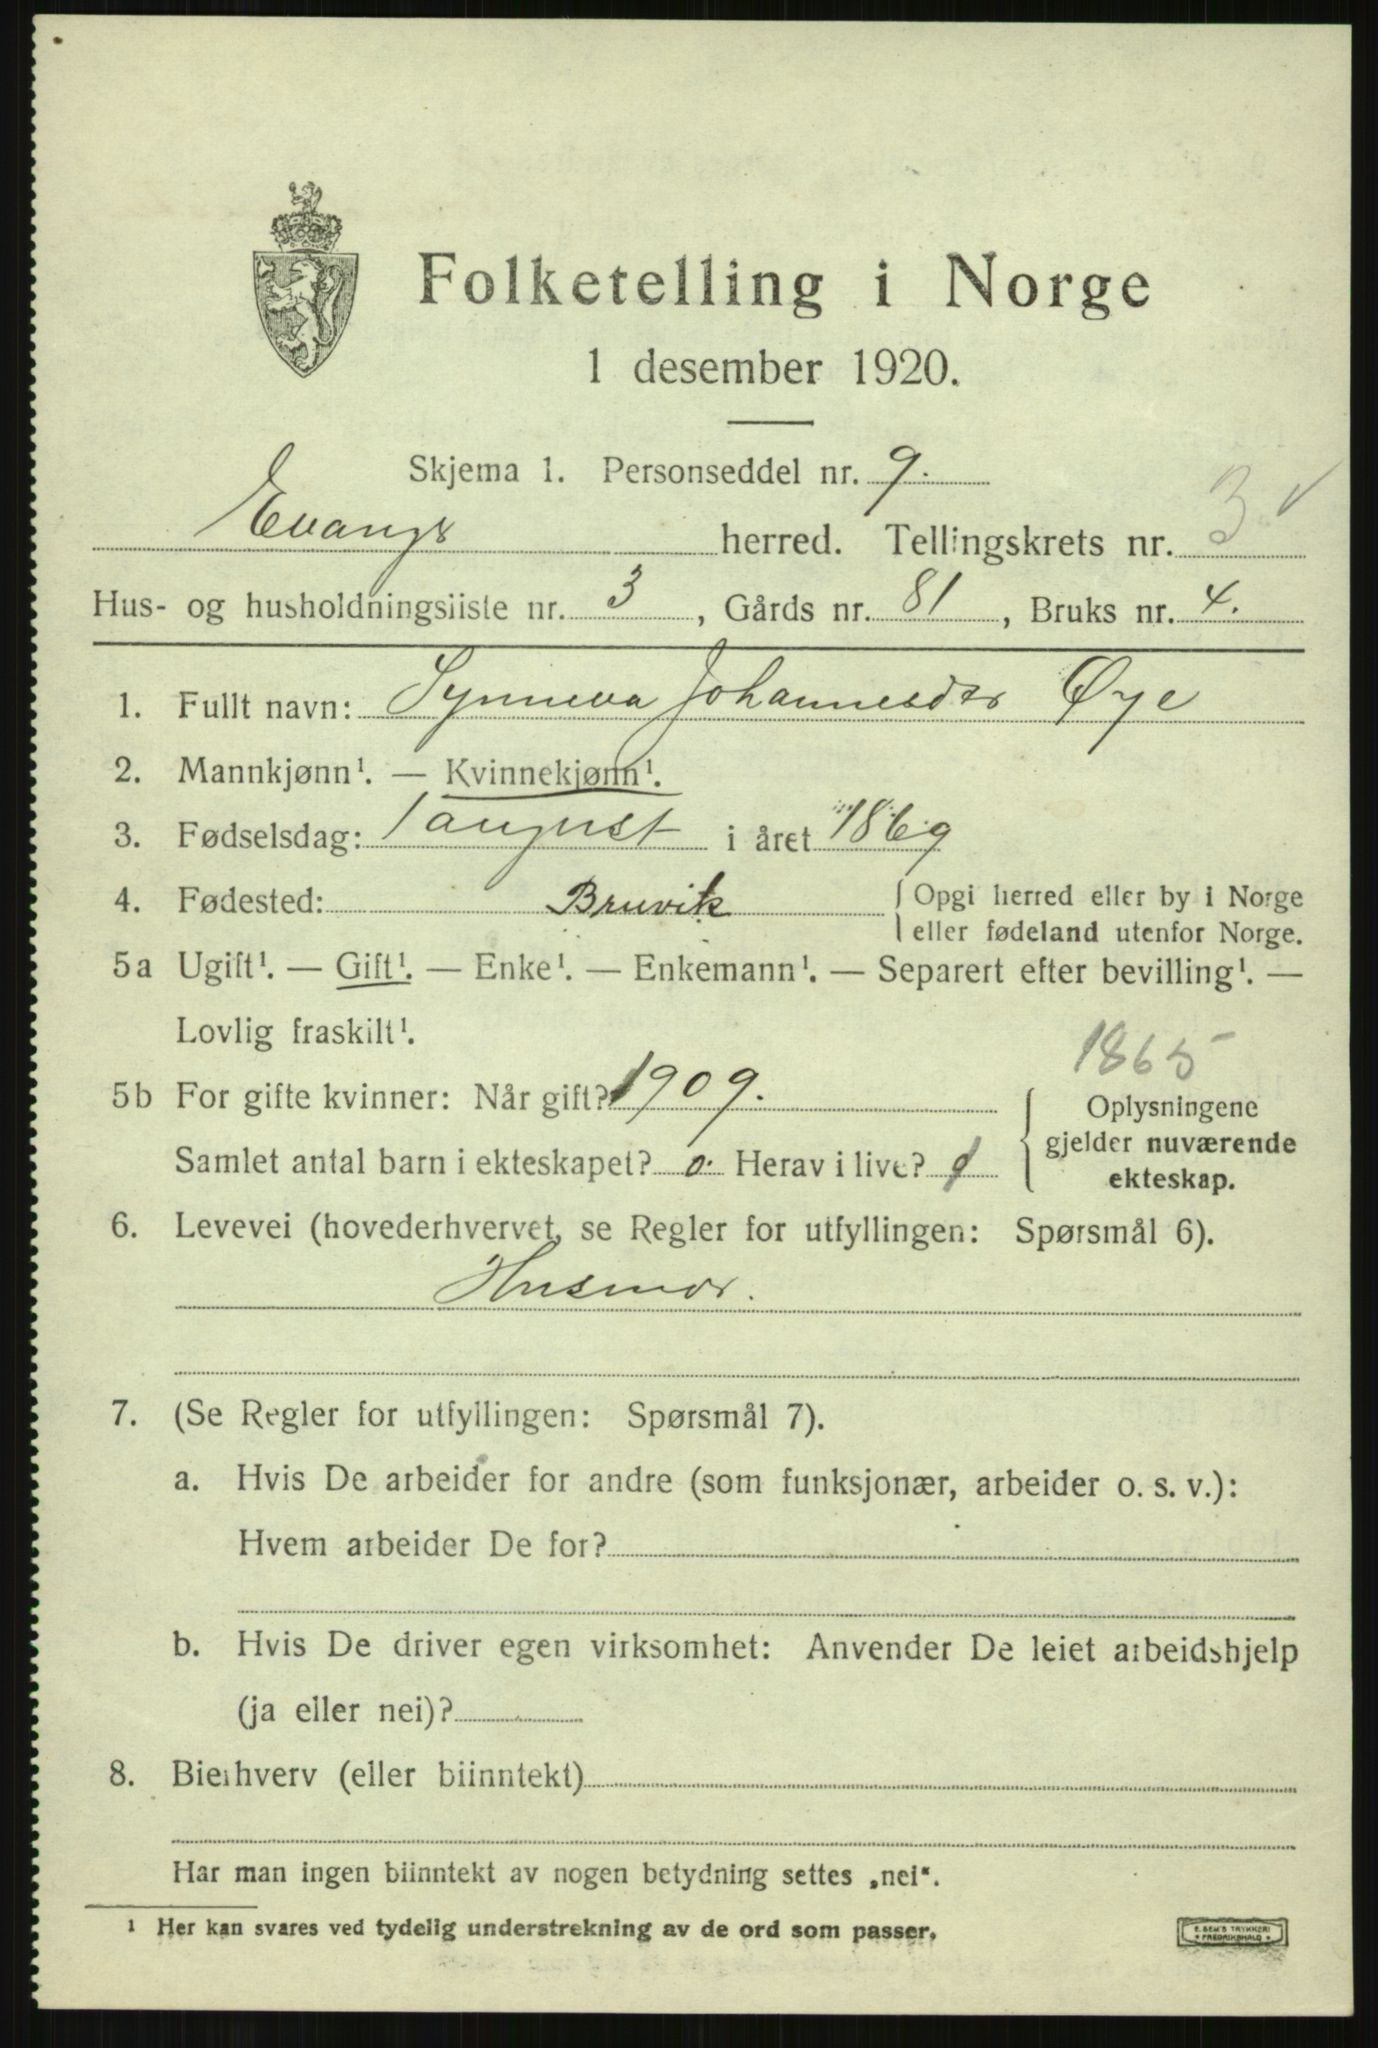 Folketelling i Norge
1 desember 1920.
Skjema 1. Personseddel nr. 9.
Evangr herred. Tellingskrets nr. 3 v
Hus- og husholdningsliste nr. 3, Gårds nr. 81, Bruks nr. 4.
1. Fullt navn: Synneva Johannesdtr Øye
2. Mannkjønn¹. — Kvinnekjønn¹.
3. Fødselsdag: 1 august i året 1869
4. Fødested: Bruvik { Opgi herred eller by i Norge
eller fødeland utenfor Norge.
5a Ugift¹. — Gift¹. — Enke¹. — Enkemann¹. — Separert efter bevilling¹. —
Lovlig fraskilt¹.
1865
5b For gifte kvinner: Når gift? 1909. { Oplysningene
gjelder nuværende
ekteskap.
Samlet antal barn i ekteskapet? 0. Herav i live?
6. Levevei (hovederhvervet, se Regler for utfyllingen: Spørsmål 6).
Husmor.
7. (Se Regler for utfyllingen: Spørsmål 7).
a. Hvis De arbeider for andre (som funksjonær, arbeider o. s. v.):
Hvem arbeider De for?
b. Hvis De driver egen virksomhet: Anvender De leiet arbeidshjelp
(ja eller nei)?
8. Bierhverv (eller biinntekt)
Har man ingen biinntekt av nogen betydning settes „nei“.
¹ Her kan svares ved tydelig understrekning av de ord som passer.
E. SEM'S TRYKKERI
FREDRIKSHALD